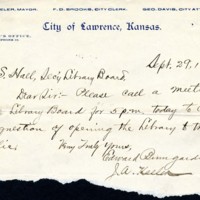 ELER, MAYOR. F. D. BROOKS, CITY CLERK. GEO. DAVIS, CITY AT
City of Lawrence, Kansas.
Sept. 29, 1
S. Hall, Sec'y Library Board,
Dear Sir:- Please call a meet
Library Board for 5 p.m. today to
question of opening the Library to th
lic.
Very Truly Yours,
Edward Bumgard
J. A. Keeler